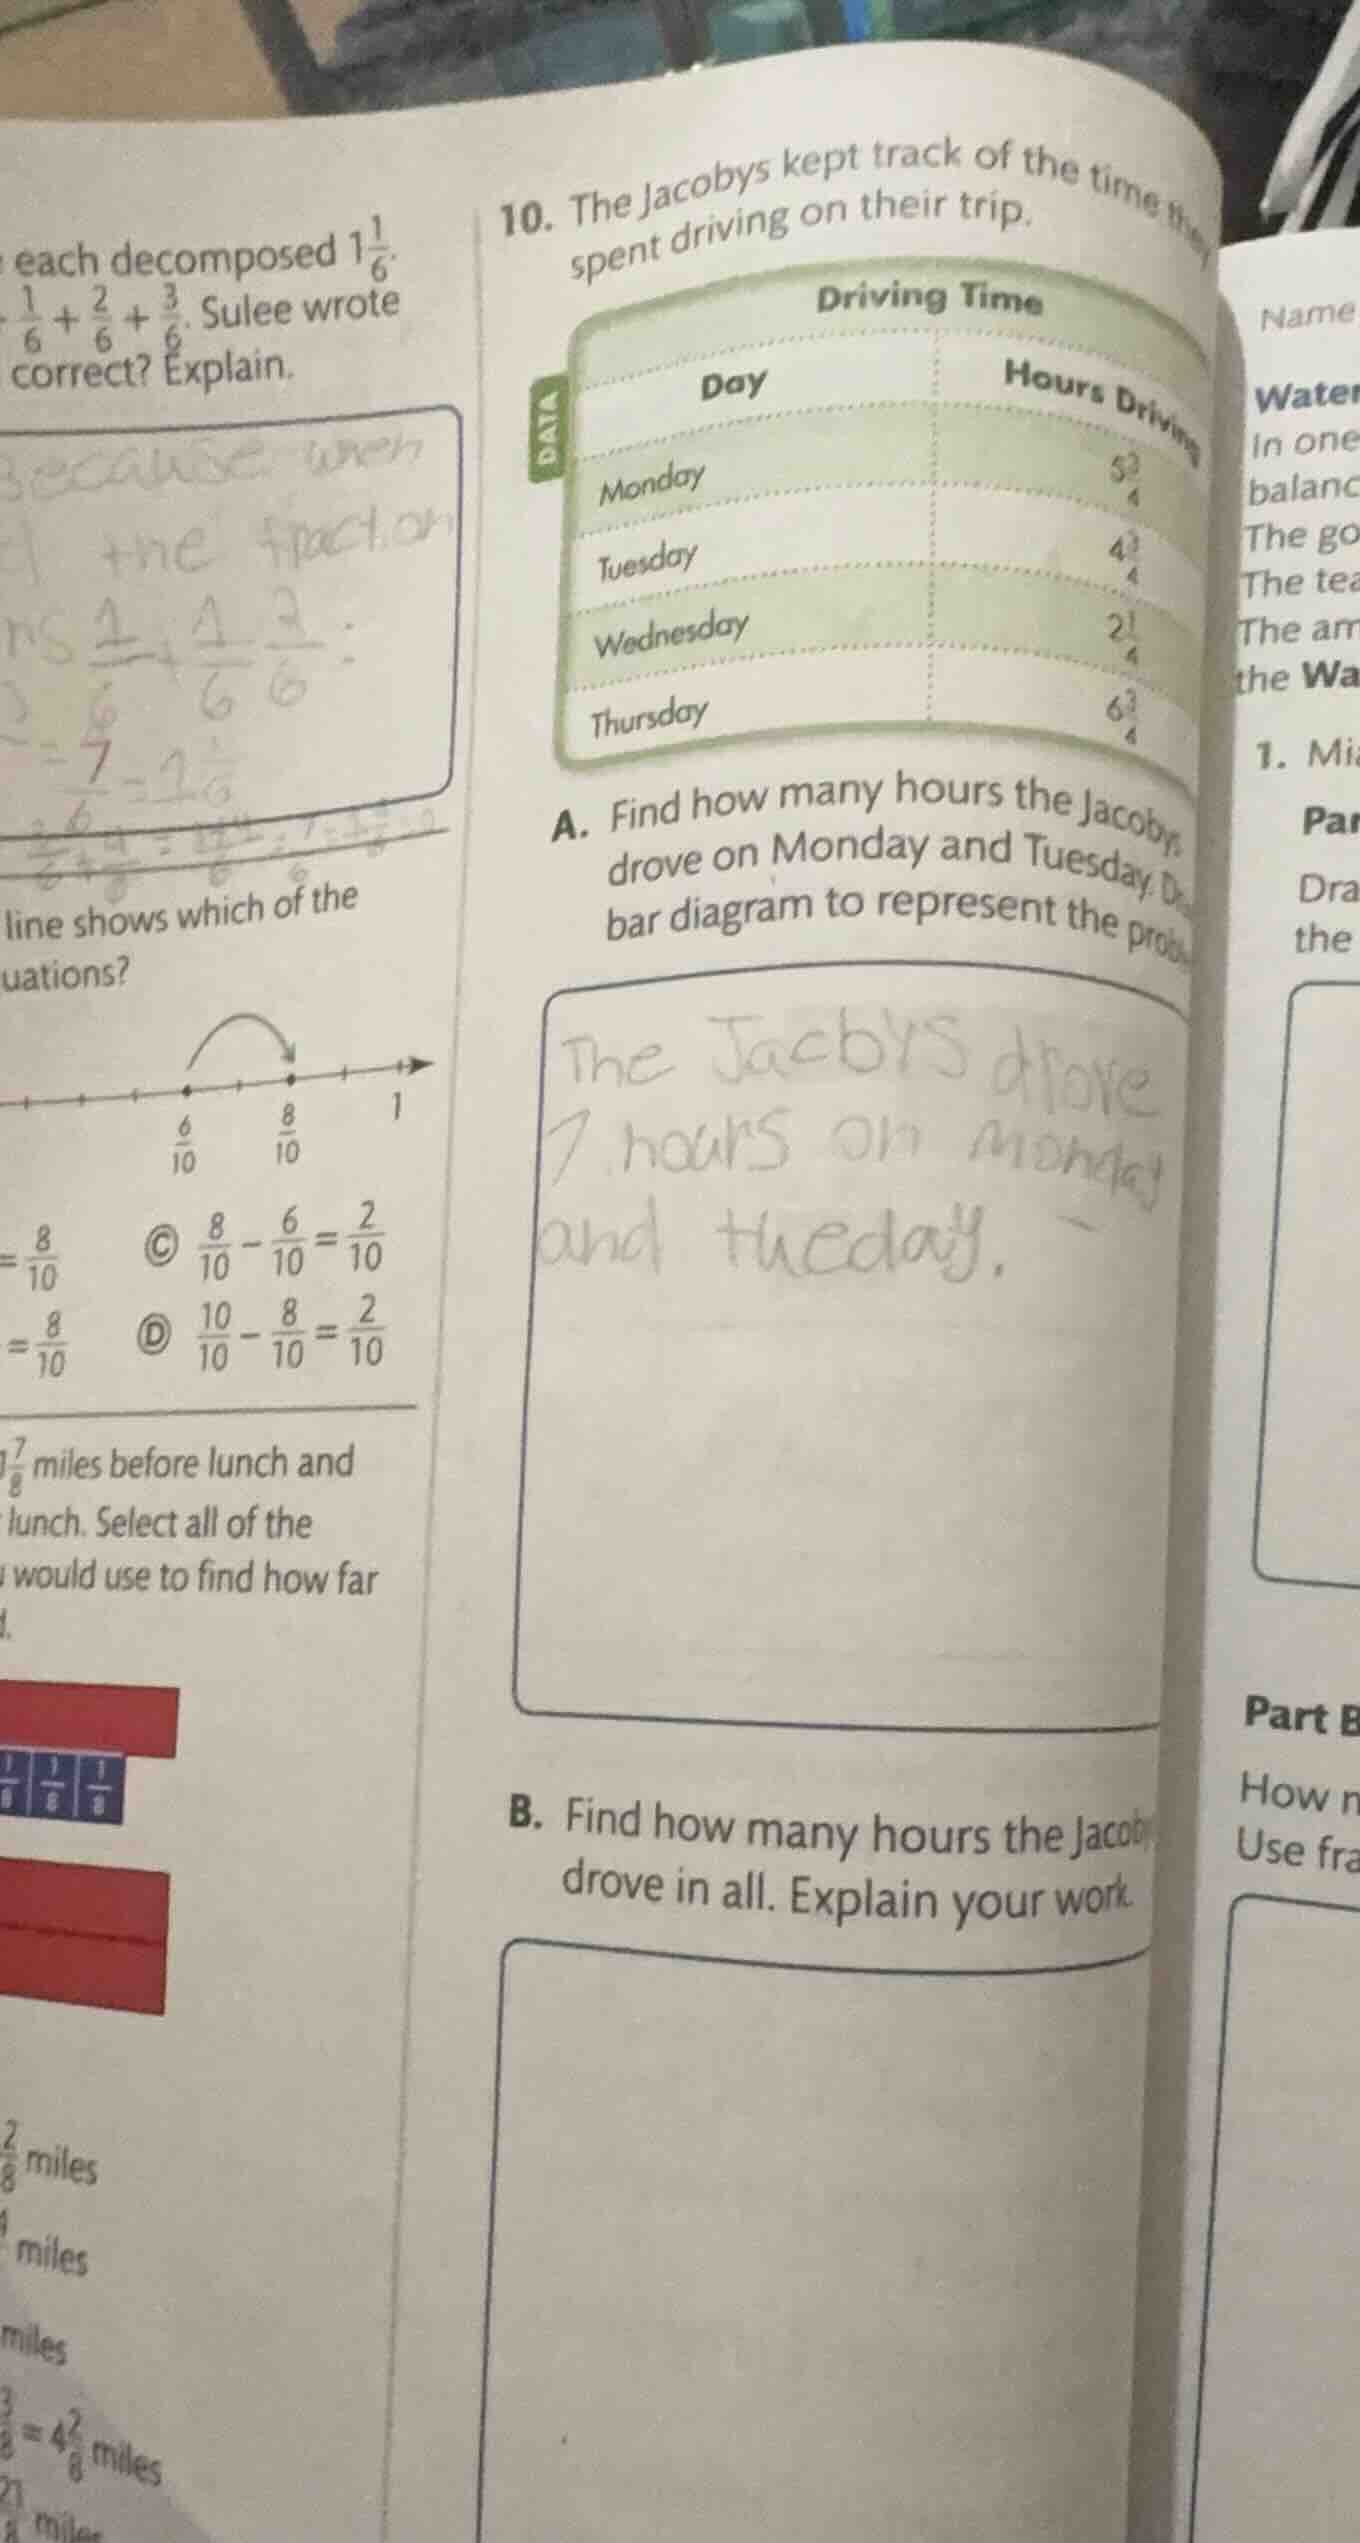 each decomposed 1 1/6.
1/6 + 2/6 + 3/6. Sulee wrote
correct? Explain.
Because when
the fraction
1/6 + 1/6 2/6 :
= 7/6 = 1
line shows which of the
uations?
6/10 8/10 1
= 8/10 Ⓒ 8/10 − 6/10 = 2/10
= 8/10 Ⓓ 10/10 − 8/10 = 2/10
7/8 miles before lunch and
lunch. Select all of the
would use to find how far
1/8 1/8 1/8
2/8 miles
miles
miles
= 4 2/8 miles
miles
10. The Jacobys kept track of the time they
spent driving on their trip.
DATA
Driving Time
Day Hours Driving
Monday 5 3/4
Tuesday 4 3/4
Wednesday 2 1/4
Thursday 6 3/4
A. Find how many hours the Jacobys
drove on Monday and Tuesday.
bar diagram to represent the
The Jacbys drove
7 hours on Monday
and theday.
B. Find how many hours the Jacob
drove in all. Explain your work.
Name
Water
In one
balanc
The go
The tea
The am
the Wa
1. Mia
Par
Dra
the
Part B
How
Use fra